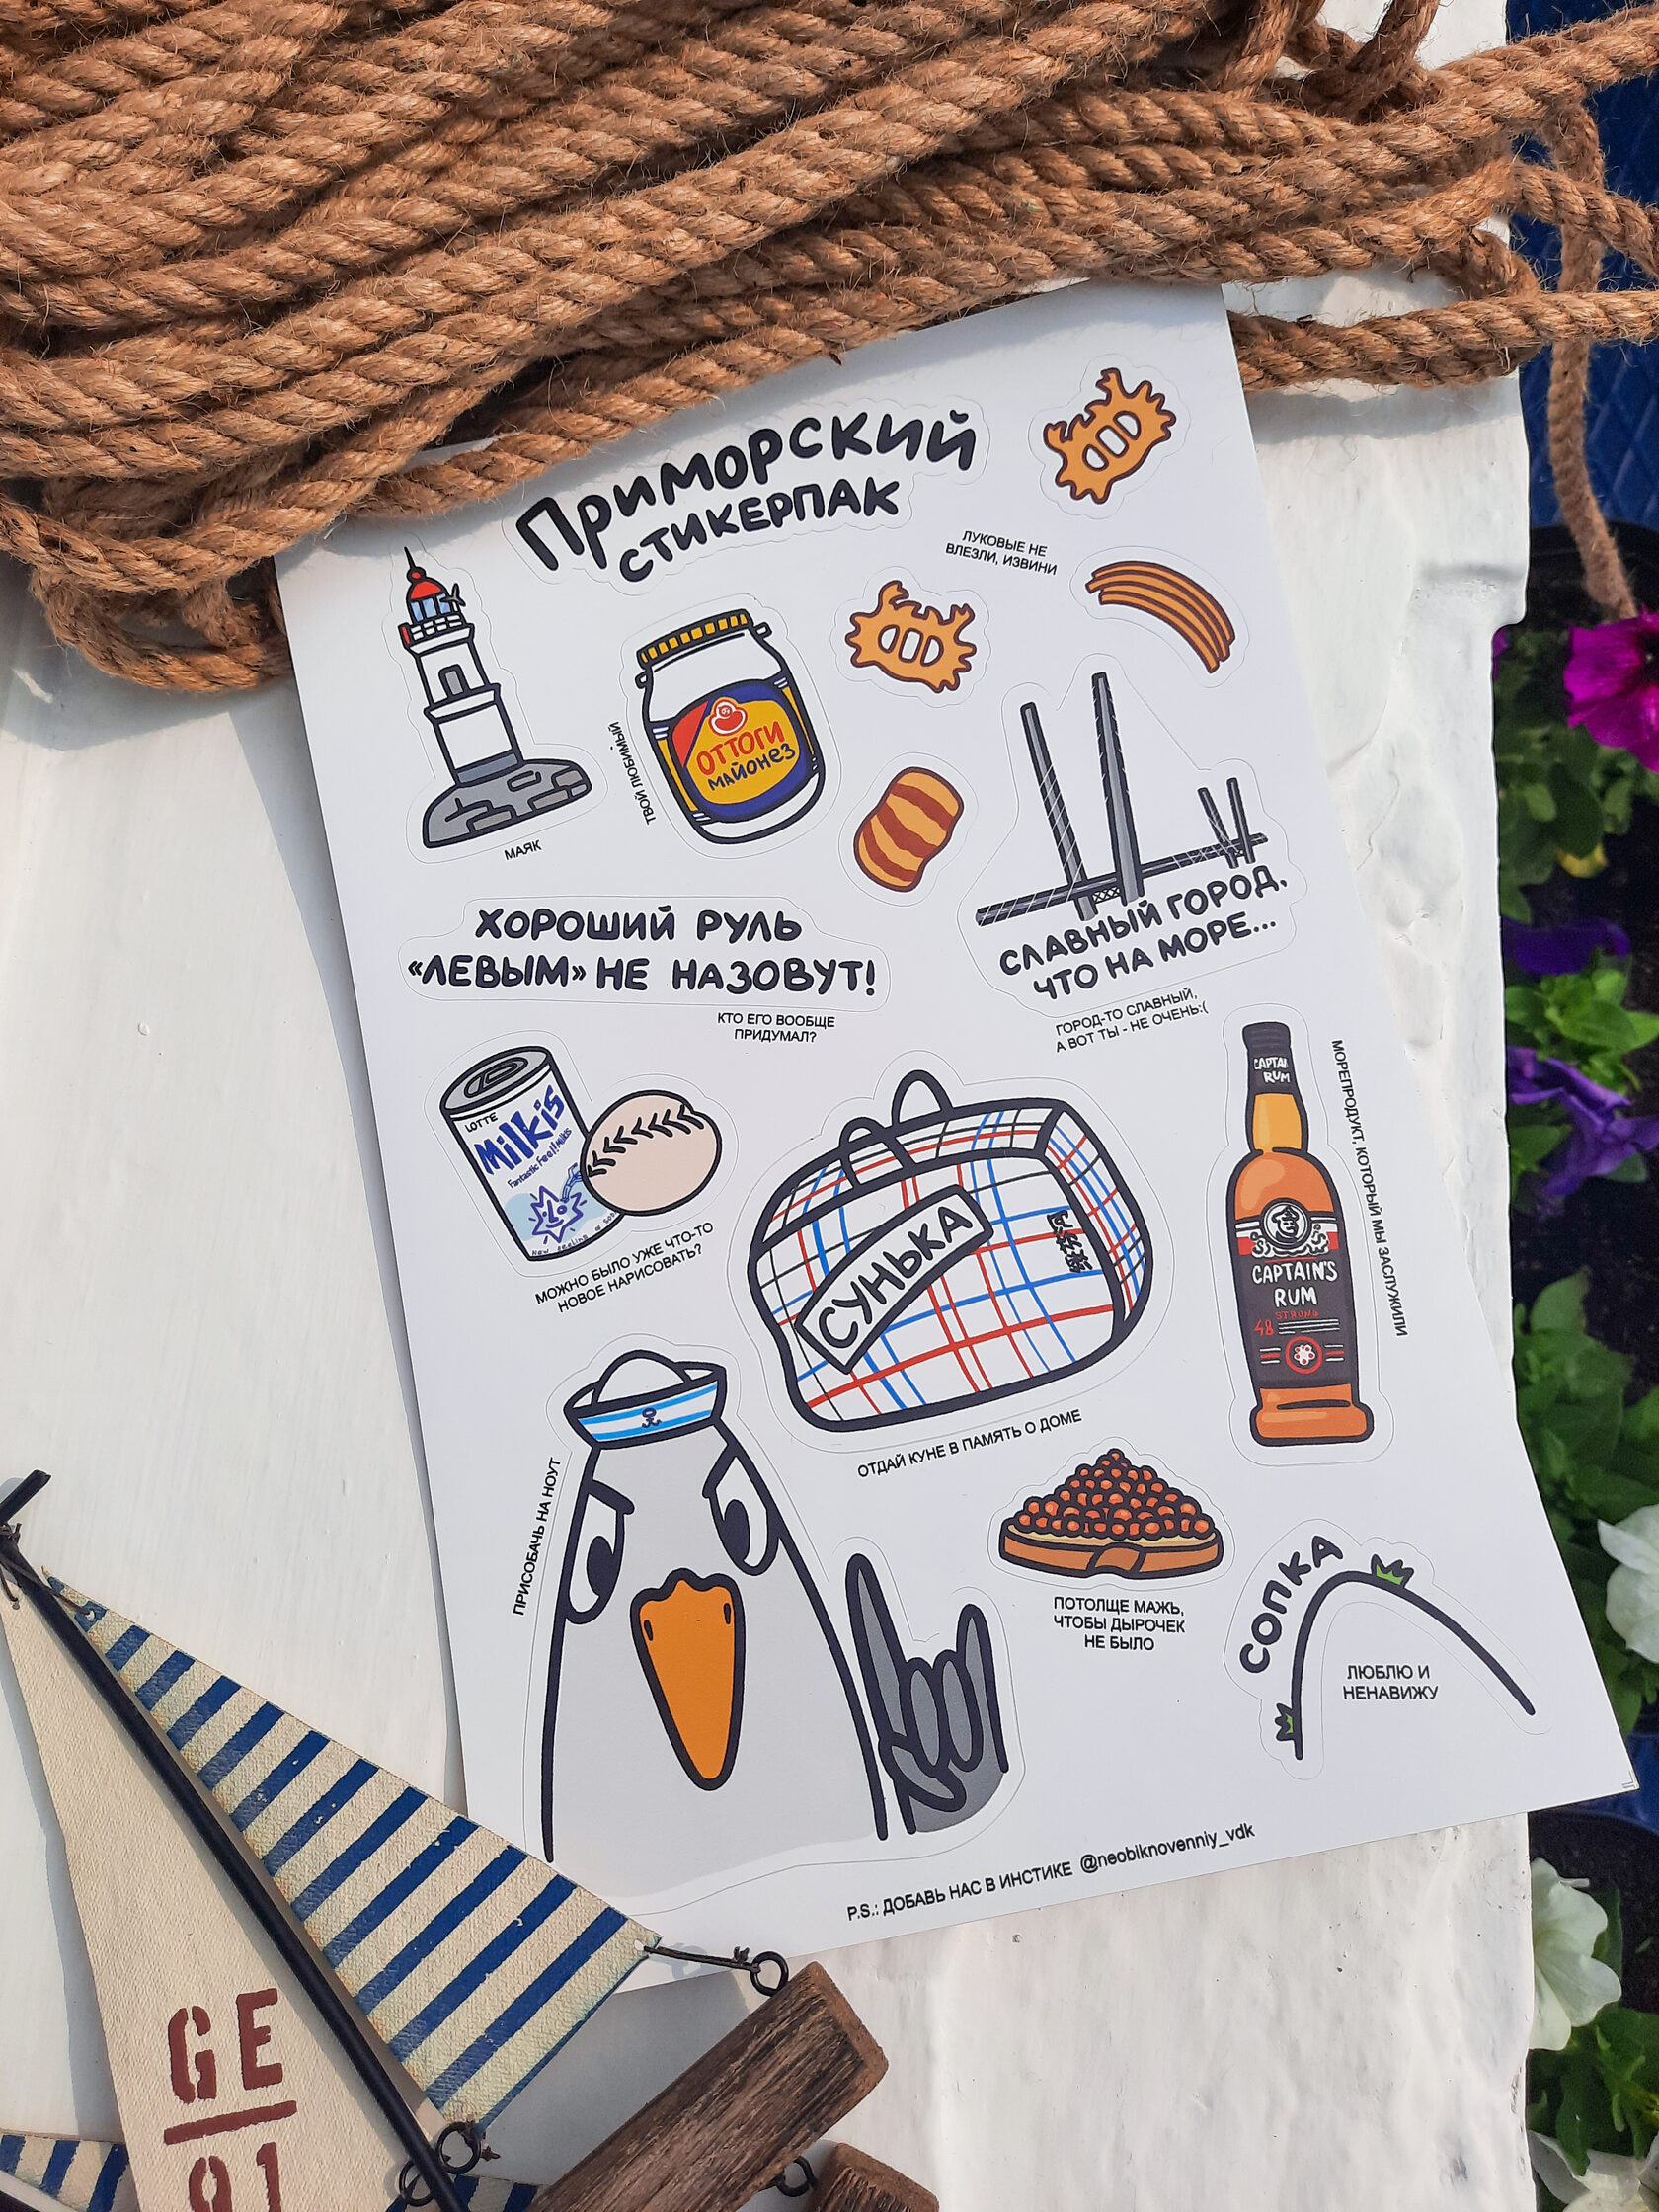 Приморский
стикерпак
ЛУКОВЫЕ НЕ
ВЛЕЗЛИ, ИЗВИНИ
МАЯК
ТВОЙ ЛЮБИМЫЙ
ОТТОГИ
МАЙОНЕЗ
ХОРОШИЙ РУЛЬ
«ЛЕВЫМ» НЕ НАЗОВУТ!
КТО ЕГО ВООБЩЕ
ПРИДУМАЛ?
СЛАВНЫЙ ГОРОД,
ЧТО НА МОРЕ...
ГОРОД-ТО СЛАВНЫЙ,
А ВОТ ТЫ - НЕ ОЧЕНЬ:(
LOTTE
Milkis
Fantastic Feel! Milkis
New feeling of soda
МОЖНО БЫЛО УЖЕ ЧТО-ТО
НОВОЕ НАРИСОВАТЬ?
СУНЬКА
ОТДАЙ КУНЕ В ПАМЯТЬ О ДОМЕ
CAPTAI
RUM
CAPTAIN'S
RUM
STRONG
48
МОРЕПРОДУКТ, КОТОРЫЙ МЫ ЗАСЛУЖИЛИ
ПРИСОБАЧЬ НА НОУТ
ПОТОЛЩЕ МАЖЬ,
ЧТОБЫ ДЫРОЧЕК
НЕ БЫЛО
СОПКА
ЛЮБЛЮ И
НЕНАВИЖУ
P.S.: ДОБАВЬ НАС В ИНСТИКЕ @neobiknovenniy_vdk
GE
01